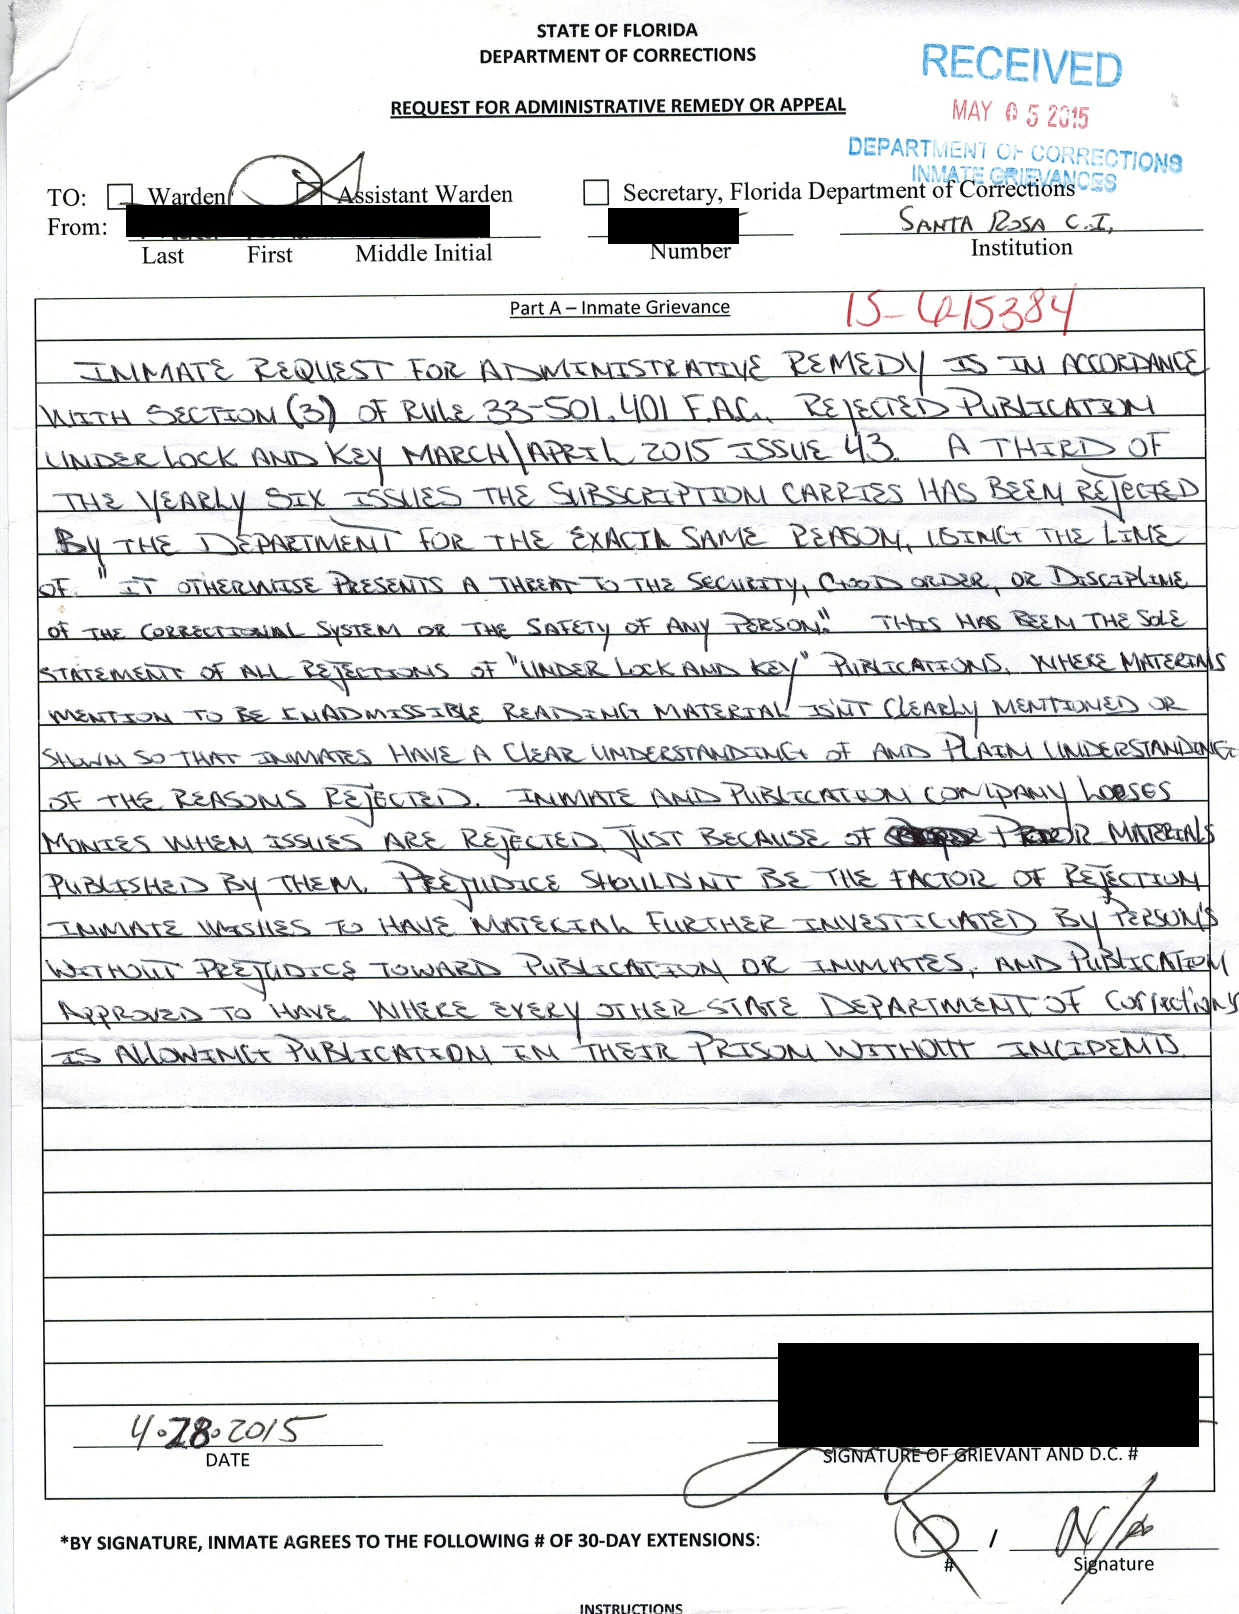 STATE OF FLORIDA
DEPARTMENT OF CORRECTIONS
RECEIVED
REQUEST FOR ADMINISTRATIVE REMEDY OR APPEAL
MAY 05 2015
DEPARTMENT OF CORRECTIONS
INMATE GRIEVANCES
TO: Warden Assistant Warden Secretary, Florida Department of Corrections
From: SANTA ROSA C.I.
Last First Middle Initial Number Institution
Part A – Inmate Grievance 15-6-15384
INMATE REQUEST FOR ADMINISTRATIVE REMEDY IS IN ACCORDANCE
WITH SECTION (3) OF RULE 33-501.401 F.A.C. REJECTED PUBLICATION
UNDER LOCK AND KEY MARCH/APRIL 2015 ISSUE 43. A THIRD OF
THE YEARLY SIX ISSUES THE SUBSCRIPTION CARRIES HAS BEEN REJECTED
BY THE DEPARTMENT FOR THE SAME REASON, USING THE LINE
OF "IT OTHERWISE PRESENTS A THREAT TO THE SECURITY, GOOD ORDER, OR DISCIPLINE
OF THE CORRECTIONAL SYSTEM OR THE SAFETY OF ANY PERSON." THIS HAS BEEN THE SOLE
STATEMENT OF ALL REJECTIONS OF "UNDER LOCK AND KEY" PUBLICATIONS. WHERE MATERIALS
MENTION TO BE INADMISSIBLE READING MATERIAL ISN'T CLEARLY MENTIONED OR
SHOWN SO THAT INMATES HAVE A CLEAR UNDERSTANDING OF AND PLAIN UNDERSTANDING
OF THE REASONS REJECTED. INMATE AND PUBLICATION COMPANY LOOSES
MONIES WHEN ISSUES ARE REJECTED, JUST BECAUSE OF PRIOR MATERIALS
PUBLISHED BY THEM. PREJUDICE SHOULDN'T BE THE FACTOR OF REJECTION
INMATE WISHES TO HAVE MATERIAL FURTHER INVESTIGATED BY PERSON'S
WITHOUT PREJUDICE TOWARD PUBLICATION OR INMATES, AND PUBLICATION
APPROVED TO HAVE. WHERE EVERY OTHER STATE DEPARTMENT OF Corrections
IS ALLOWING PUBLICATION IN THEIR PRISON WITHOUT INCIDENTS.
4.28.2015
DATE SIGNATURE OF GRIEVANT AND D.C. #
*BY SIGNATURE, INMATE AGREES TO THE FOLLOWING # OF 30-DAY EXTENSIONS: 0 / N/A
# Signature
INSTRUCTIONS